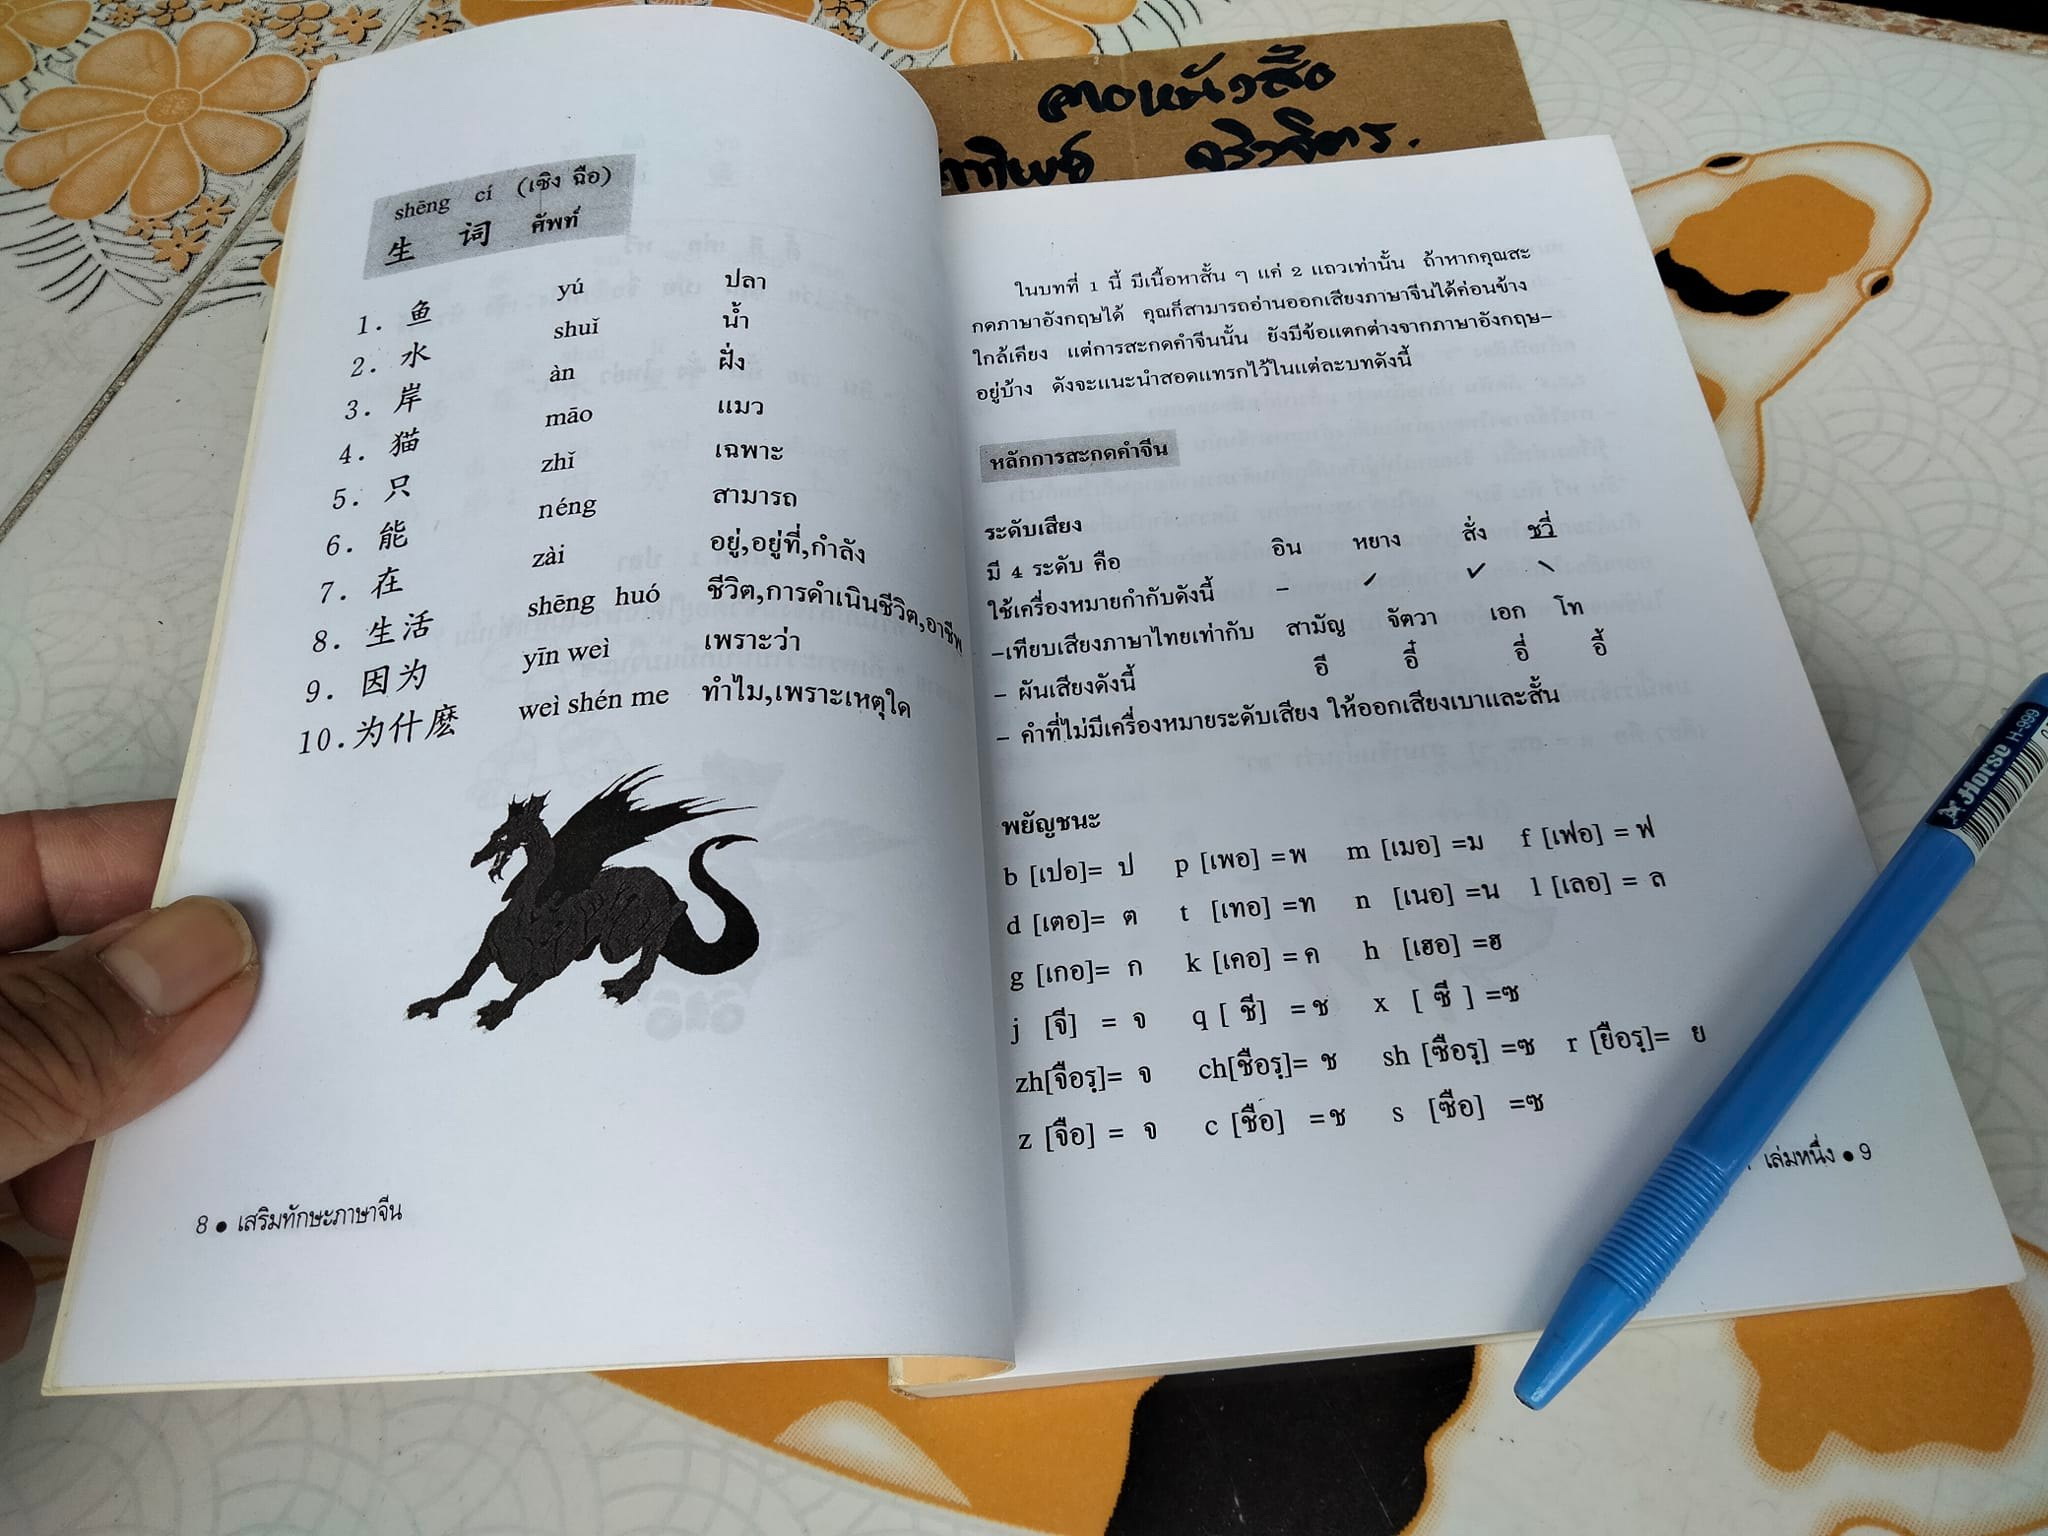 shēng cí (เซิง ฉือ)
生 词 ศัพท์
1. 鱼 yú ปลา
2. 水 shuǐ น้ำ
3. 岸 àn ฝั่ง
4. 猫 māo แมว
5. 只 zhǐ เฉพาะ
6. 能 néng สามารถ
7. 在 zài อยู่,อยู่ที่,กำลัง
8. 生活 shēng huó ชีวิต,การดำเนินชีวิต,อาชีพ
9. 因为 yīn weì เพราะว่า
10. 为什麽 weì shén me ทำไม,เพราะเหตุใด
8 ● เสริมทักษะภาษาจีน
ในบทที่ 1 นี้ มีเนื้อหาสั้น ๆ แค่ 2 แถวเท่านั้น ถ้าหากคุณสะ
กดภาษาอังกฤษได้ คุณก็สามารถอ่านออกเสียงภาษาจีนได้ค่อนข้าง
ใกล้เคียง แต่การสะกดคำจีนนั้น ยังมีข้อแตกต่างจากภาษาอังกฤษ-
อยู่บ้าง ดังจะแนะนำสอดแทรกไว้ในแต่ละบทดังนี้
หลักการสะกดคำจีน
ระดับเสียง
มี 4 ระดับ คือ อิน หยาง สั่ง ชวี่
ใช้เครื่องหมายกำกับดังนี้ – ˊ ˇ ˋ
-เทียบเสียงภาษาไทยเท่ากับ สามัญ จัตวา เอก โท
- ผันเสียงดังนี้ อี อี๋ อี่ อี้
- คำที่ไม่มีเครื่องหมายระดับเสียง ให้ออกเสียงเบาและสั้น
พยัญชนะ
b [เปอ]= ป p [เพอ] =พ m [เมอ] =ม f [เฟอ] = ฟ
d [เตอ]= ต t [เทอ] =ท n [เนอ] =น l [เลอ] = ล
g [เกอ]= ก k [เคอ] = ค h [เฮอ] =ฮ
j [จี] = จ q [ ชี] = ช x [ ซี ] =ซ
zh[จือรฺ]= จ ch[ชือรฺ]= ช sh [ซือรฺ] =ซ r [ยือรฺ]= ย
z [จือ] = จ c [ชือ] =ช s [ซือ] =ซ
เล่มหนึ่ง ● 9
Horse H-999